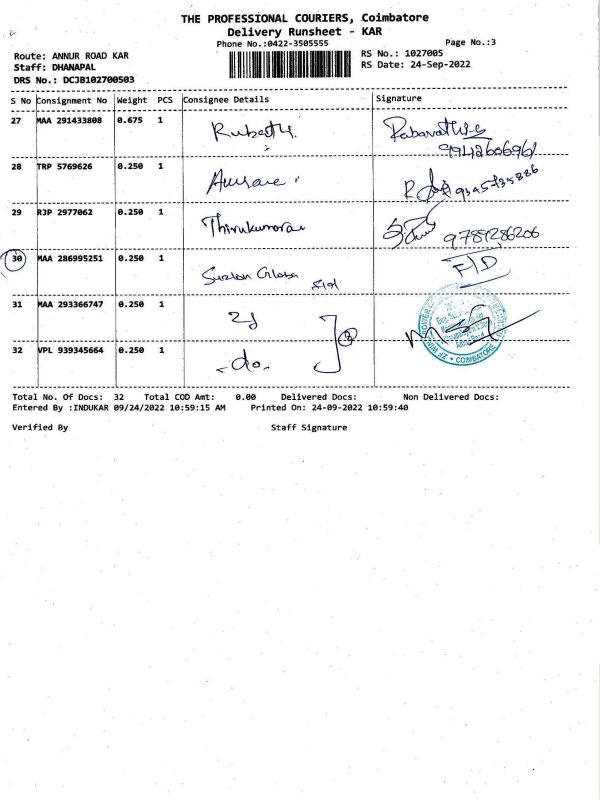 THE PROFESSIONAL COURIERS, Coimbatore
Delivery Runsheet - KAR
Phone No.:0422-3505555
Page No.:3
Route: ANNUR ROAD KAR
RS No.: 1027005
Staff: DHANAPAL
RS Date: 24-Sep-2022
DRS No.: DCJB102700503
S No Consignment No Weight PCS Consignee Details Signature
27 MAA 291433808 0.675 1
28 TRP 5769626 0.250 1
29 RJP 2977062 0.250 1 Thirukumaran
30 MAA 286995251 0.250 1 F/D
31 MAA 293366747 0.250 1
32 VPL 939345664 0.250 1 -do-
COIMBATORE
Total No. Of Docs: 32 Total COD Amt: 0.00 Delivered Docs: Non Delivered Docs:
Entered By :INDUKAR 09/24/2022 10:59:15 AM Printed On: 24-09-2022 10:59:40
Verified By Staff Signature